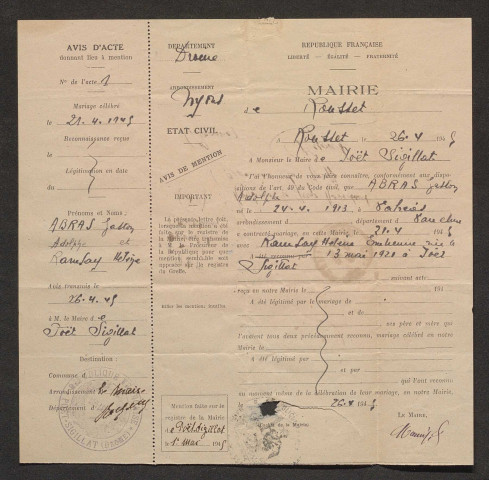 AVIS D'ACTE
donnant lieu à mention
N° de l'acte 1
Mariage célébré
le 21.4.1945
Reconnaissance reçue
le
Légitimation en date
du
Prénoms et Noms :
ABRAS Gaston
Adolphe et
Ramsay Hélène
Avis transmis le
26.4.45
à M. le Maire de
Poët Sigillat
Destination :
Commune, d
Arrondissement
Département d
DÉPARTEMENT
Drome
ARRONDISSEMENT
Nyons
ETAT CIVIL
AVIS DE MENTION
IMPORTANT
Biffer les mentions inutiles
Mention faite sur le
registre de la Mairie
de Poët Sigillat
le 1er Mai 1945
RÉPUBLIQUE FRANÇAISE
LIBERTÉ — ÉGALITÉ — FRATERNITÉ
MAIRIE
de Rousset
à Rousset le 26.4 1945
A Monsieur le Maire de Poët Sigillat
J'ai l'honneur de vous faire connaître, conformément aux dispo-
sitions de l'art. 49 du Code civil, que ABRAS Gaston
Adolphe
né le 24.4.1913 à
arrondissement d département de Vaucluse
a contracté mariage, en notre Mairie, le 21.4 1945
avec Ramsay Hélène née le
13 mai 1921 à Poët
Sigillat
suivant acte
reçu en notre Mairie le 194
A été légitimé par le mariage de
et de
ses père et mère qui
l'avaient tous deux précédemment reconnu, mariage célébré en notre
Mairie le
A été légitimé par
et par qui l'ont reconnu
au moment même de la célébration de leur mariage, en notre Mairie.
le 26.4 1945
Le Maire,